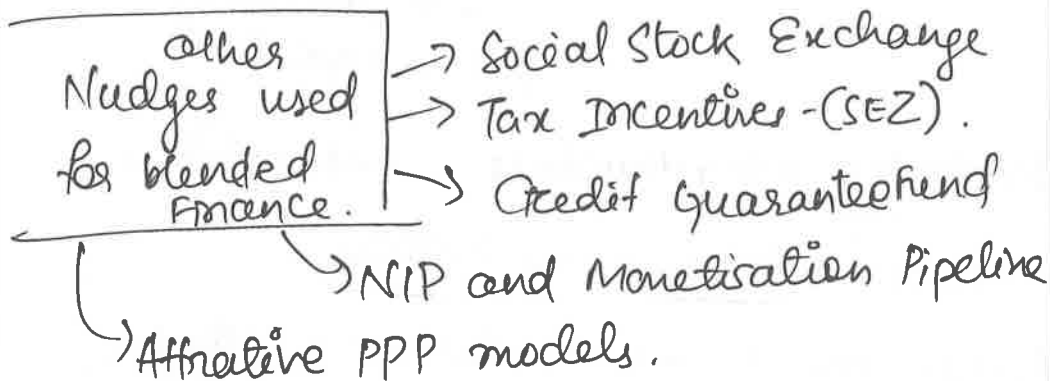 other
Nudges used
for blended
Finance.
→ Social Stock Exchange
→ Tax Incentives - (SEZ).
→ Credit Guarantee Fund
→ NIP and Monetisation Pipeline
→ Attrative PPP models.